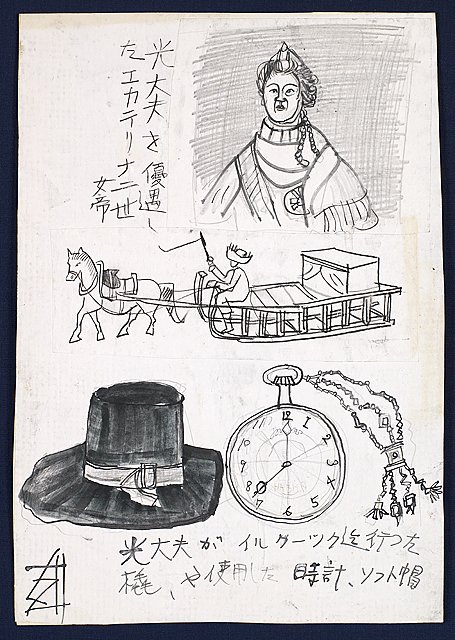 光大夫を優遇し
たエカテリナ二世
女帝
12
1
2
3
4
5
6
7
8
9
10
11
光大夫がイルクーツク迄行った
橇、や使用した時計、ソフト帽